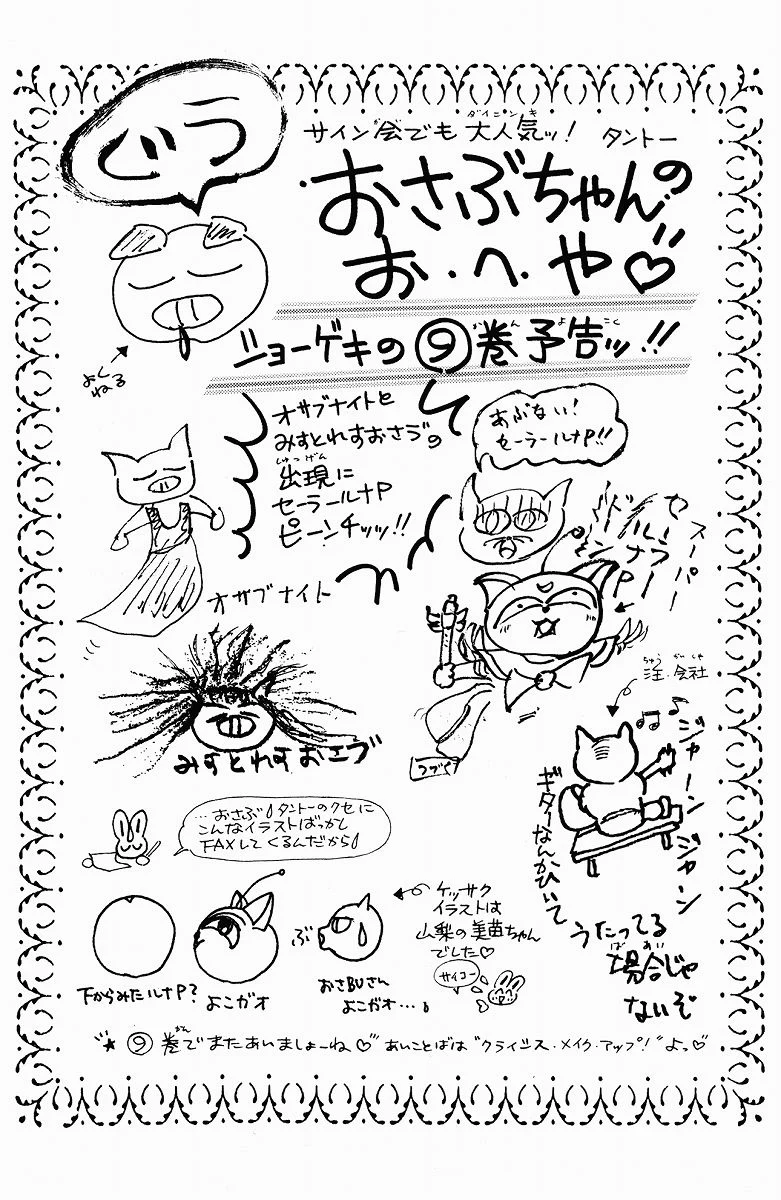 ぐう
サイン会でも大人気ッ! タントー
ダイニンキ
おさぶちゃんの
お・へ・や♡
よく
ねる
ショーゲキの⑨巻予告ッ!!
かん よ こく
オサブナイトと
みすとれすおさブの
出現に
しゅつげん
セーラールナP
ピーンチッッ!!
あぶない!
セーラールナP!!
スーパー
セーラー
ルナP
オサブナイト
みすとれすおさブ
つづく
注・会社
ちゅう がいしゃ
♪♫
ジャーン
ジャーン
ギターなんかひいて
うたってる
場合じゃ
ばあい
ないぞ
…おさぶ タントーのクセに
こんなイラストばっかし
FAXしてくるんだから
ケッサク
イラストは
山梨の美苗ちゃん
でした♡
サイコー
ぶ
下からみたルナP?
よこガオ
おさBUさん
よこガオ…
★⑨巻でまたあいましょーね♡ あいことばは“クライシス・メイク・アップ!”よっ♡
かん